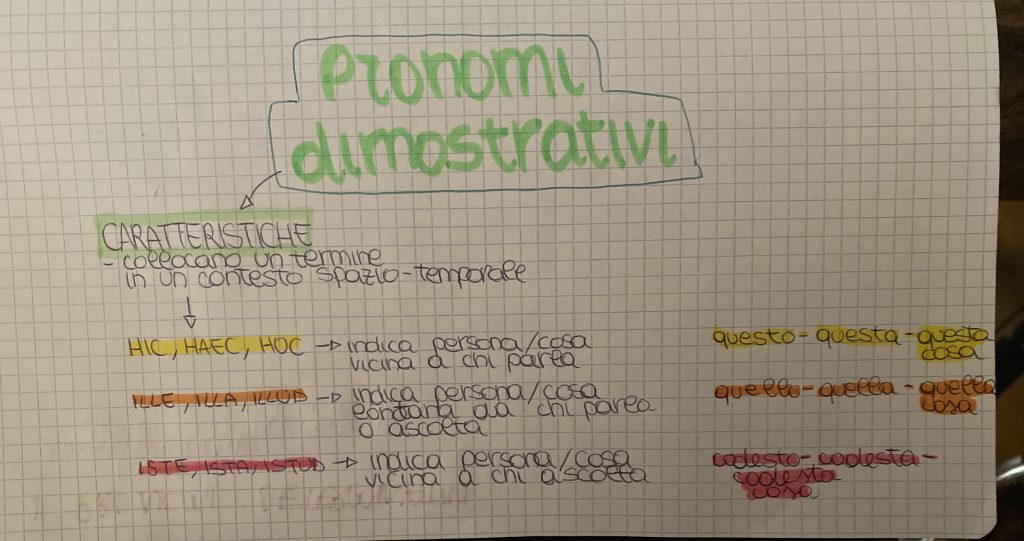 Pronomi
dimostrativi
CARATTERISTICHE
- collocano un termine
in un contesto spazio-temporale
HIC, HAEC, HOC → indica persona/cosa
vicina a chi parla
questo - questa - questa
cosa
ILLE, ILLA, ILLUD → indica persona/cosa
lontana da chi parla
o ascolta
quello - quella - quella
cosa
ISTE, ISTA, ISTUD → indica persona/cosa
vicina a chi ascolta
codesto - codesta -
codesta
cosa